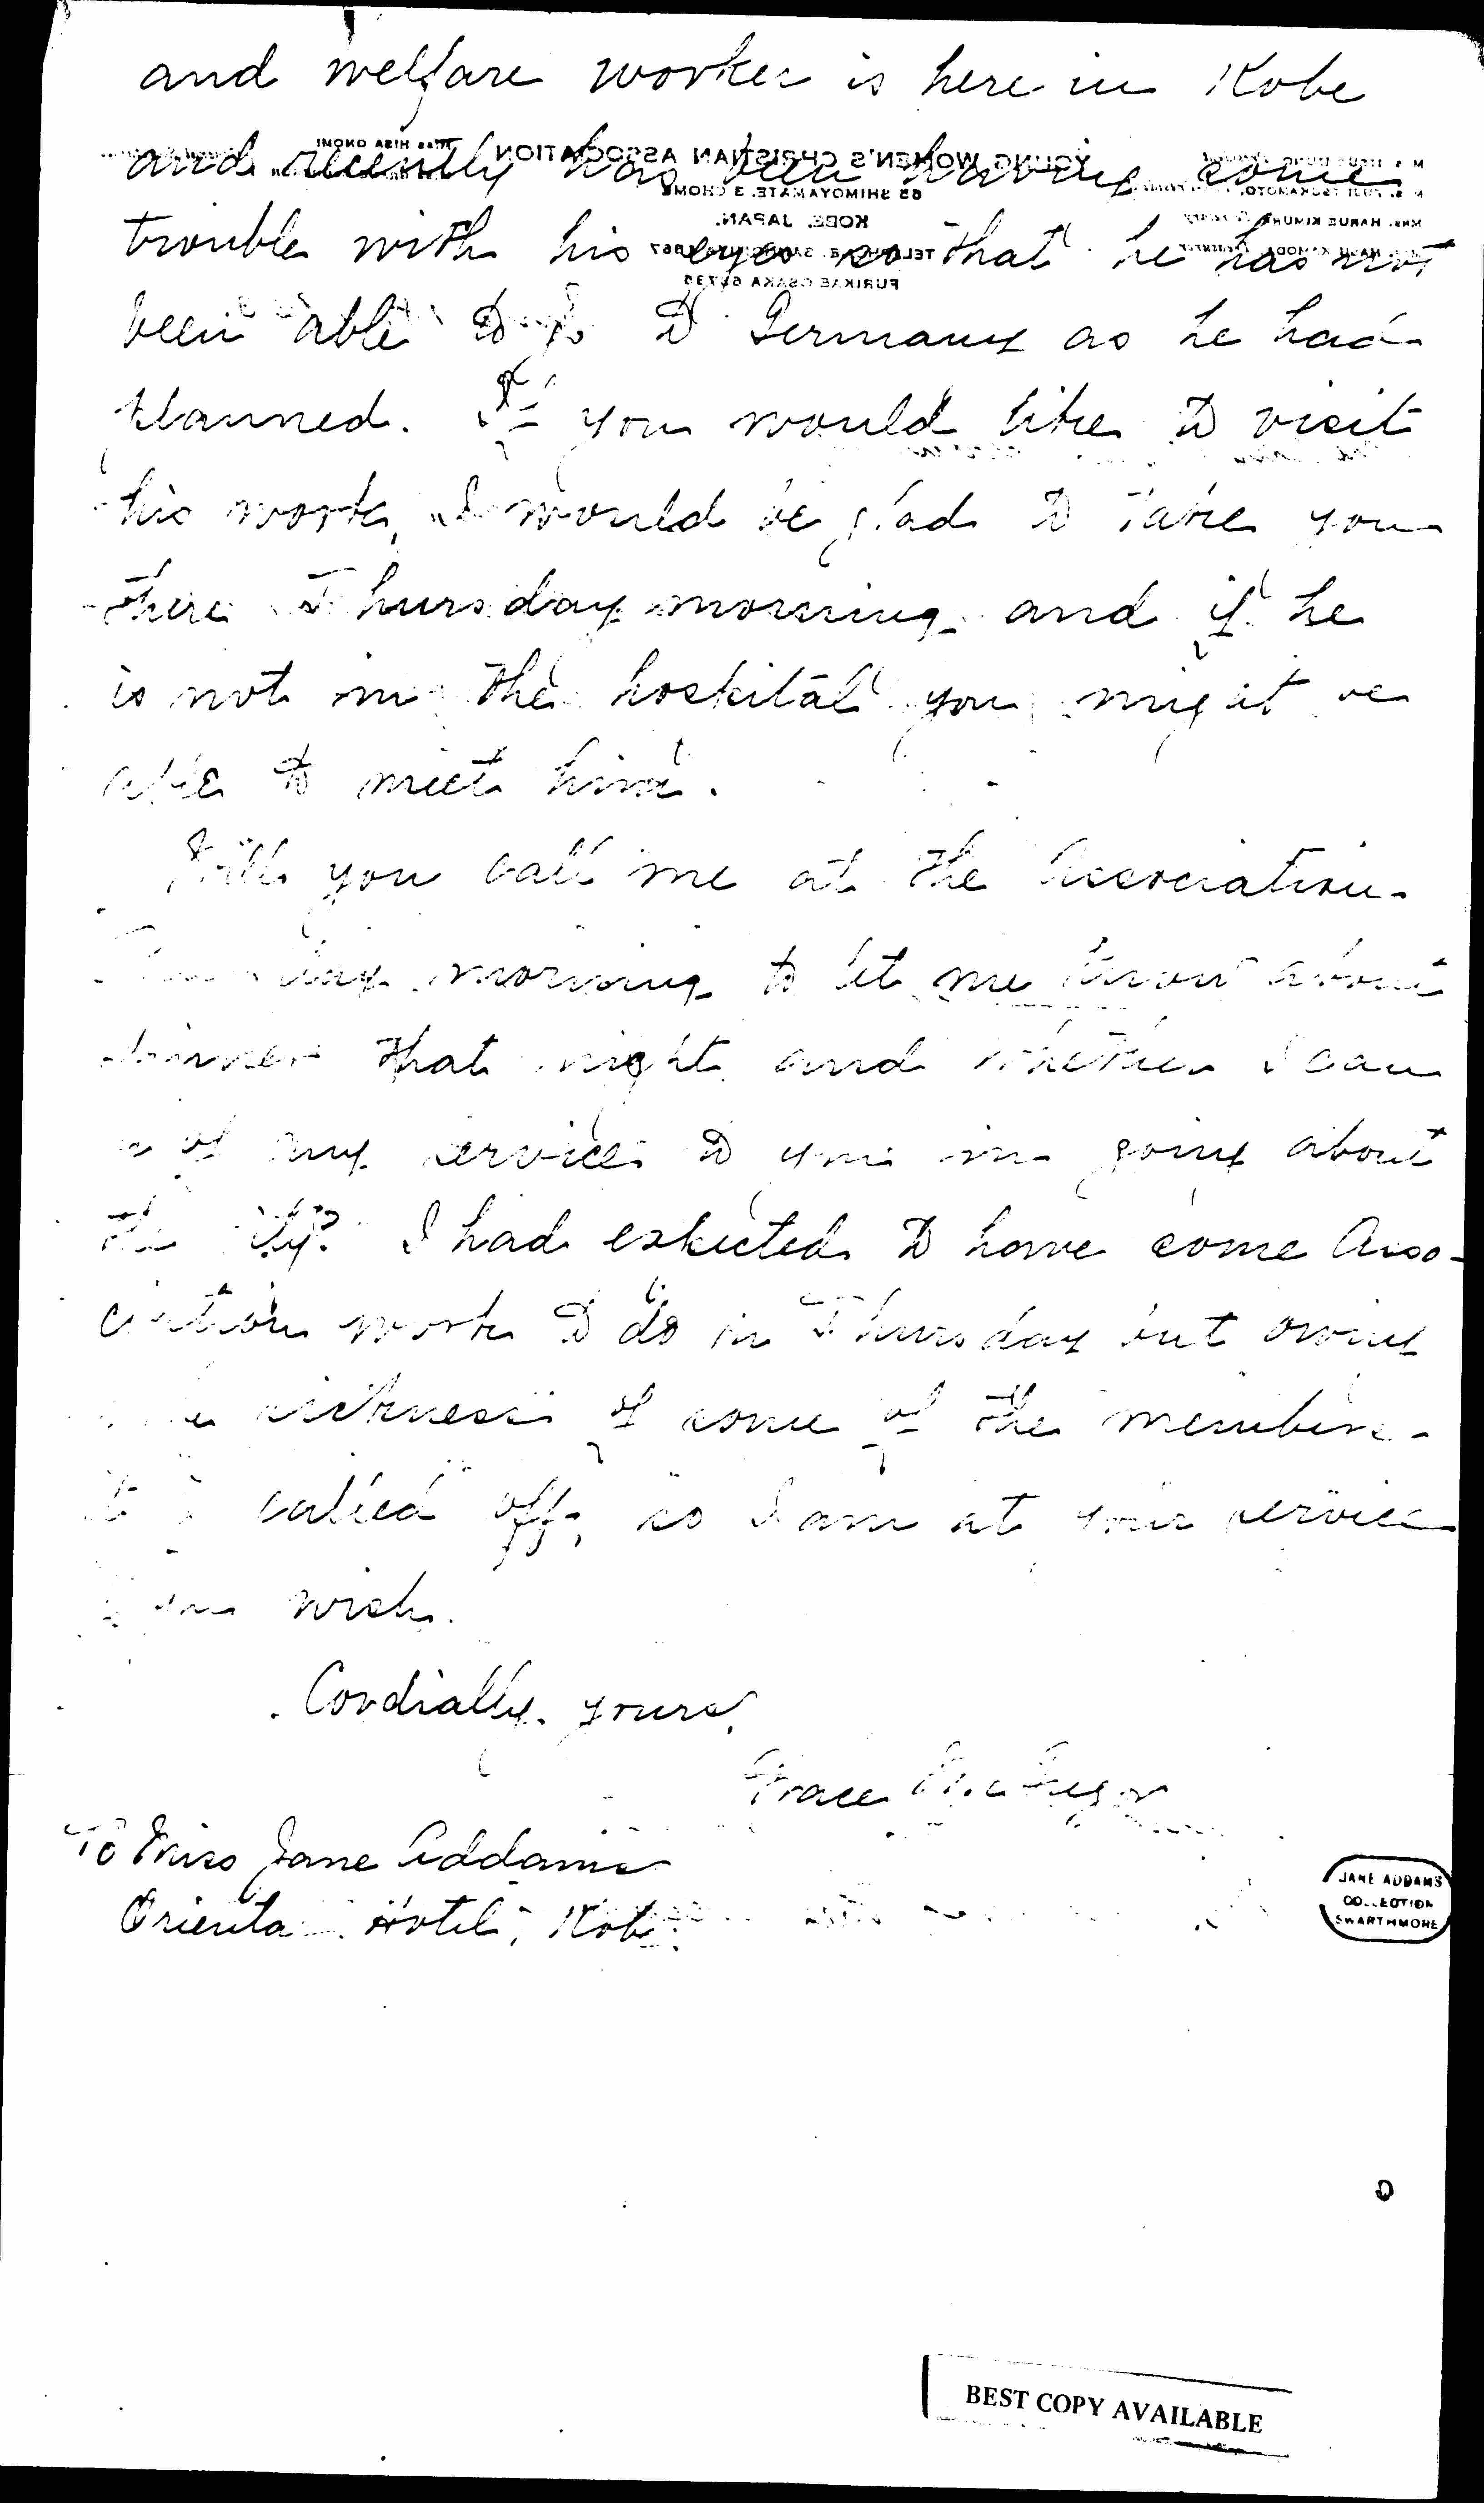 and welfare worker is here in Kobe
and recently has been having some
trouble with his eyes so that he has not
been able to go to Germany as he had
planned. If you would like to visit
his work, I would be glad to take you
there Thursday morning and if he
is not in the hospital you might be
able to meet him.
Will you call me at the Association
morning to let me know about
dinner that night and whether I can
of any service to you in going about
the city? I had expected to have some Asso-
ciation work to do on Thursday but owing
sickness of some of the members
it called off, so I am at your service
you wish.
Cordially yours,
Grace McGregor
To Miss Jane Addams
Oriental Hotel, Kobe
YOUNG WOMEN'S CHRISTIAN ASSOCIATION
MISS HISA OKOMI
65 SHIMOYAMATE, 3 CHOME
KOBE, JAPAN.
MRS. HARUE KIMURA
FURIKAE OSAKA
JANE ADDAMS
COLLECTION
SWARTHMORE
BEST COPY AVAILABLE